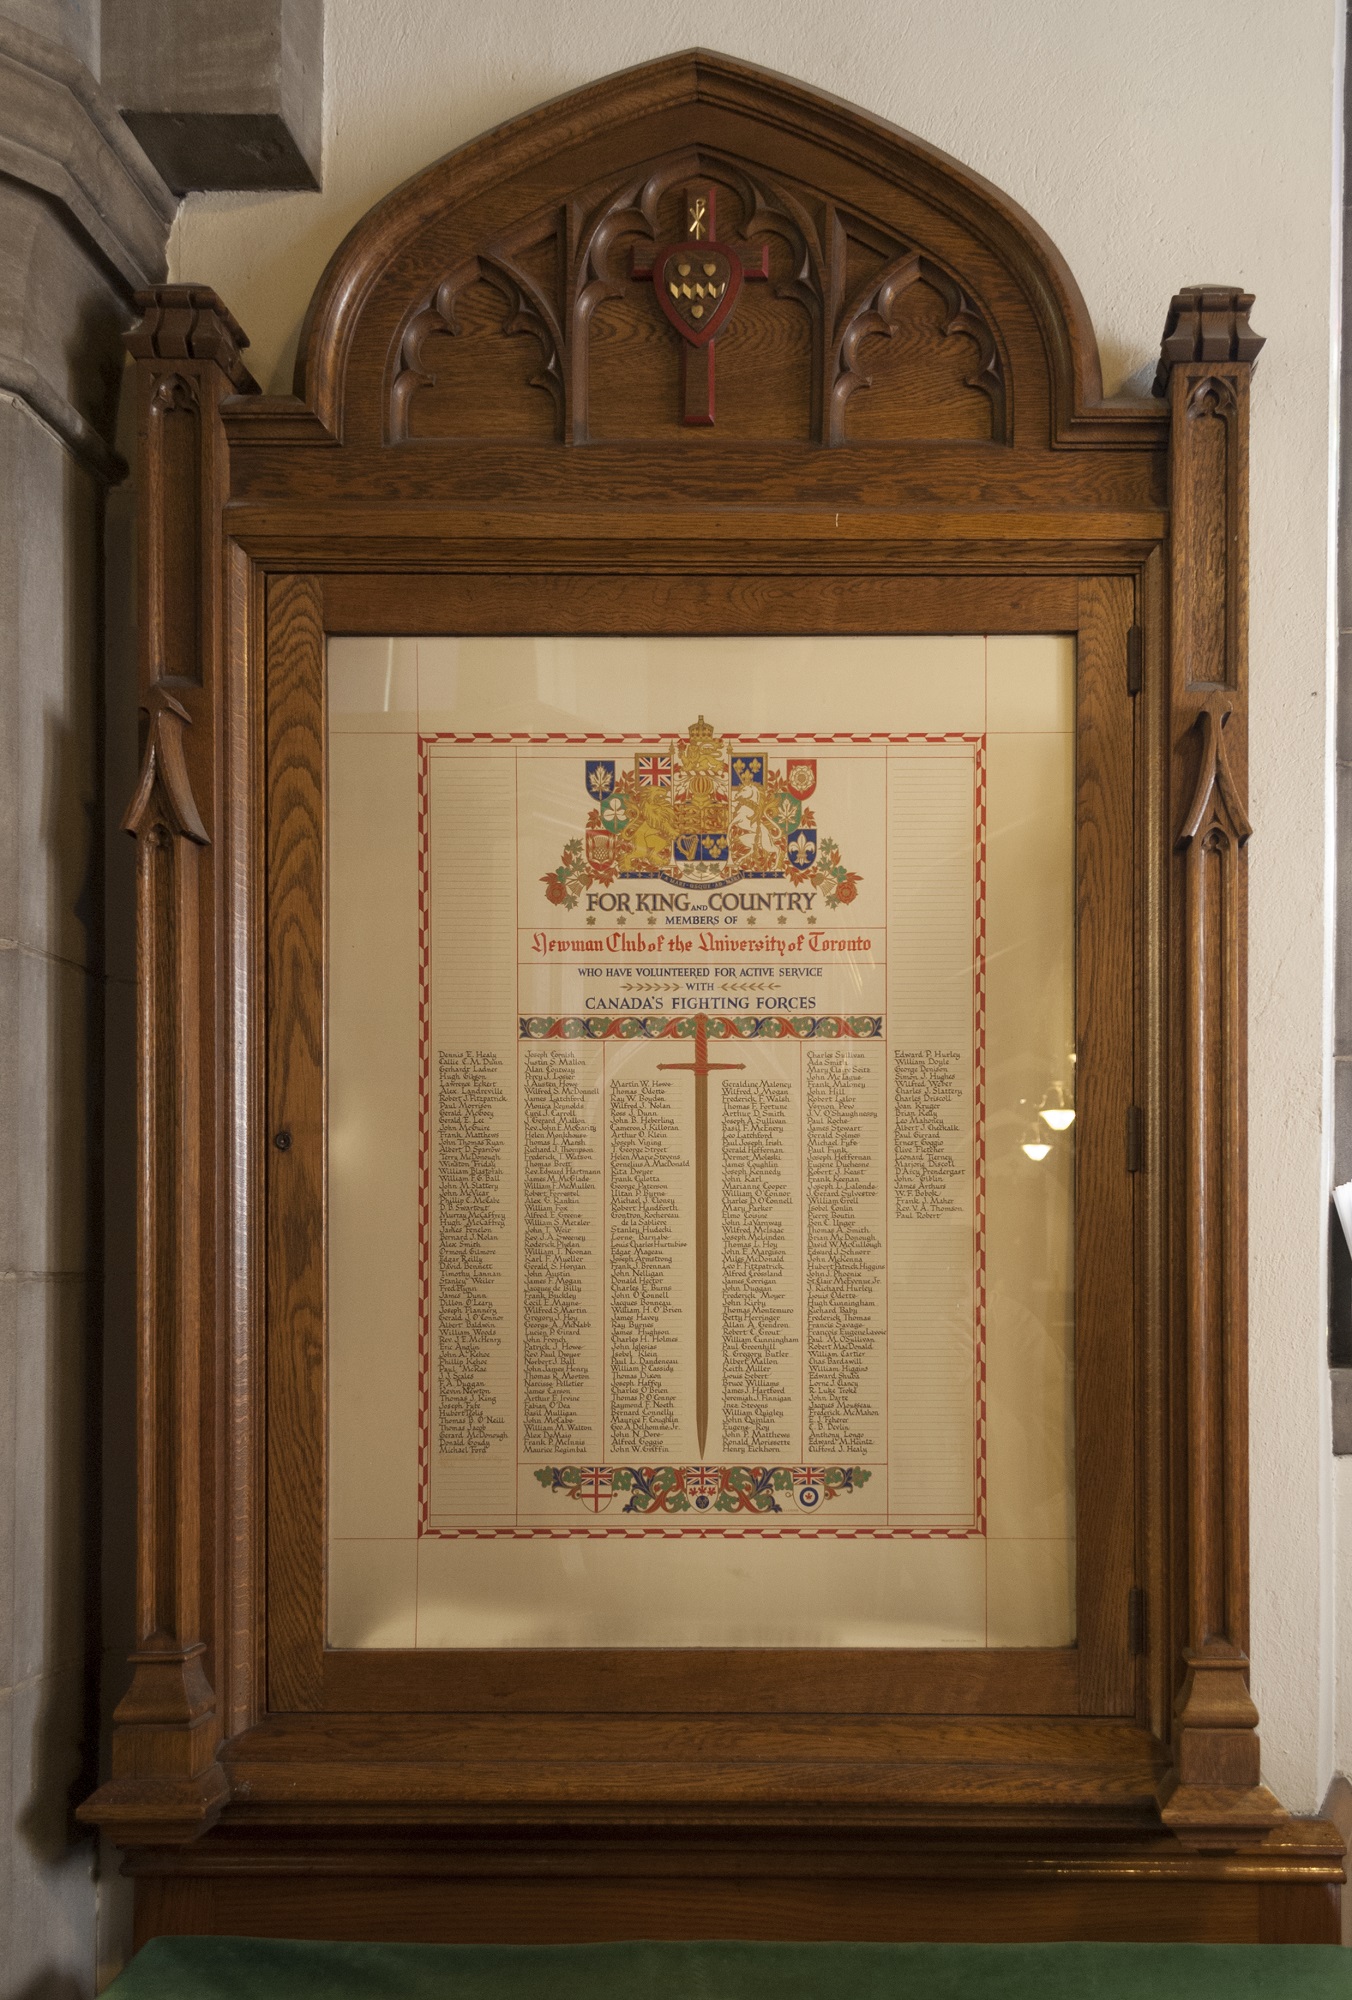 FOR KING AND COUNTRY
MEMBERS OF
Newman Club of the University of Toronto
WHO HAVE VOLUNTEERED FOR ACTIVE SERVICE
WITH
CANADA'S FIGHTING FORCES
Dennis E. Healy
Callie C.M. Dunn
Gerhardt Ladner
Hugh Gibson
Lawrence Eckert
Alex. Landreville
Robert J. Fitzpatrick
Paul Morrison
Gerald McEvoy
Gerald E. Lee
John McGuire
Frank Matthews
John Thomas Ryan
Albert D. Sparrow
Terry McDonough
Winston Friday
William F.G. Ball
John M. Slattery
John McVicar
Phillip C. McCabe
D.B. Swartout
Murray McCaffrey
Hugh McCaffrey
James Fenelon
Bernard J. Nolan
Alex Smith
Ormond Gilmore
Edgar Reilly
David Bennett
Timothy Lannan
Stanley Weiler
Fred Flynn
James Dunn
Dillon O'Leary
Joseph Flannery
Gerald J. O'Connor
Albert Baldwin
William Woods
Rev. J.E. McHenry
Eric Anglin
John A. Kehoe
Phillip Kehoe
Paul McRae
J.J. Scales
F.A. Duggan
Kevin Newton
Thomas J. King
Joseph Fyfe
Thomas B. O'Neill
Thomas Jacob
Gerard McDonough
Donald Goudy
Michael Ford
Joseph Cornish
Justin S. Mallon
Alan Conway
Percy J. Lozier
J. Austen Howe
Wilfred S. McDonnell
James Latchford
Monica Reynolds
Cyril J. Carroll
J. Gerard Mallon
Rev. John E. McGarity
Helen Monkhouse
Thomas L. Marsh
Richard J. Thompson
Frederick T. Watson
Thomas Brett
Rev. Edward Hartmann
James M. McGlade
William F. McMullon
Robert Forrestel
Alex G. Rankin
William Fox
Alfred E. Greene
William S. Metzler
John T. Weir
Rev. J.A. Sweeney
Roderick Phelan
William T. Noonan
Karl F. Mueller
Gerald S. Horgan
John Austin
James F. Mogan
Jacques de Billy
Frank Buckley
Cecil E. Mayne
Wilfred S. Martin
Gregory J. Hoy
George A. McNabb
Lucien P. Girard
John French
Patrick J. Howe
Rev. Paul Dwyer
Norbert J. Ball
John James Henry
Thomas R. Morton
Narcisse Pelletier
James Carson
Arthur E. Irvine
Fabian O'Dea
Basil Mulligan
John McCabe
William M. Walton
Alex DeMaio
Frank P. McInnis
Maurice Regimbal
Martin W. Howe
Thomas Odette
Ray W. Boyden
Wilfred J. Nolan
Ross J. Dunn
John B. Heberling
Cameron J. Killoran
Arthur O. Klein
Joseph Vining
T. George Street
Helen Marie Stevens
Cornelius A. MacDonald
Rita Dwyer
Frank Culotta
George Paterson
Ultan P. Byrne
Michael J. Cloney
Robert Handforth
Gontran Rochereau
de la Sabliere
Stanley Hudecki
Lorne Barnabe
Louis Charles Hurtubise
Edgar Mageau
Joseph Armstrong
Frank J. Brennan
John Nelligan
Donald Hector
Charles E. Burns
John O'Connell
Jacques Bonneau
William H. O'Brien
James Havey
Ray Byrnes
James Hughson
Charles H. Holmes
John Iglesias
Isobel Klein
Paul L. Dandeneau
William P. Cassidy
Thomas Dixon
Joseph Haffey
Charles O'Brien
Thomas P. O'Connor
Raymond F. North
Bernard Connelly
Maurice F. Coughlin
John N. Dore
Alfred Goggio
John W. Griffin
Geraldine Maloney
Wilfred J. Mogan
Frederick F. Walsh
Thomas F. Fortune
Arthur D. Smith
Joseph A. Sullivan
Basil F. McEnery
Leo Latchford
Paul Joseph Irish
Gerald Heffernan
Dermot Moleski
James Coughlin
Joseph Kennedy
John Karl
Marianne Cooper
William O'Connor
Charles D. O'Connell
Mary Parker
Elmo Cosine
John LaVarnway
Wilfred McIsaac
Joseph McLinden
Thomas L. Hoy
John E. Margison
Miles McDonald
Leo F. Fitzpatrick
Alfred Crossland
James Corrigan
John Duggan
Frederick Moyer
John Kirby
Thomas Montemuro
Betty Herringer
Allan A. Gendron
Robert C. Grout
William Cunningham
Paul Greenhill
R. Gregory Butler
Albert Mallon
Keith Miller
Louis Sebert
Bruce Williams
James J. Hartford
Jeremiah J. Finnigan
Inez Stevens
William Quigley
John Quinlan
Eugene Roy
John P. Matthews
Ronald Morissette
Henry Eickhorn
Charles Sullivan
Ada Smith
Mary Claire Seitz
John McTague
Frank Maloney
John Hill
Robert Lesler
Vernon Pew
J.V. O'Shaughnessy
Paul Roche
James Stewart
Gerald Solmes
Michael Fyfe
Paul Funk
Joseph Heffernan
Eugene Duchesne
Robert J. Keast
Frank Keenan
Joseph L. Lalonde
J. Gerard Sylvestre
William Grell
Isobel Conlin
Pierre Boutin
Ben C. Unger
Thomas A. Smith
Brian McDonough
David W. McCullough
Edward J. Schnorr
John McKenna
Hubert Patrick Higgins
John J. Phoenix
J. Richard Hurley
Louis Odette
Hugh Cunningham
Richard Baby
Frederick Thomas
Francis Savage
Paul M. O'Sullivan
Robert MacDonald
William Cartier
Chas Bardswill
William Higgins
Edward Shuba
Lorne J. Clancy
R. Luke Teske
John Darte
Jacques Mousseau
Frederick McMahon
E.J. Feherer
C.B. Devlin
Anthony Longo
Edward M. Heintz
Clifford J. Healy
Edward P. Hurley
William Doyle
George Denison
Simon J. Hughes
Wilfred Weber
Charles J. Slattery
Charles Driscoll
Joan Kruger
Brian Kelly
Leo Mahoney
Albert J. Gudkalk
Paul Gerard
Ernest Goggio
Clive Fletcher
Leonard Tierney
Marjorie Driscoll
D'Arcy Prendergast
John Giblin
James Arthurs
W.F. Bobok
Frank J. Maher
Rev. V.A. Thomson
Paul Robert